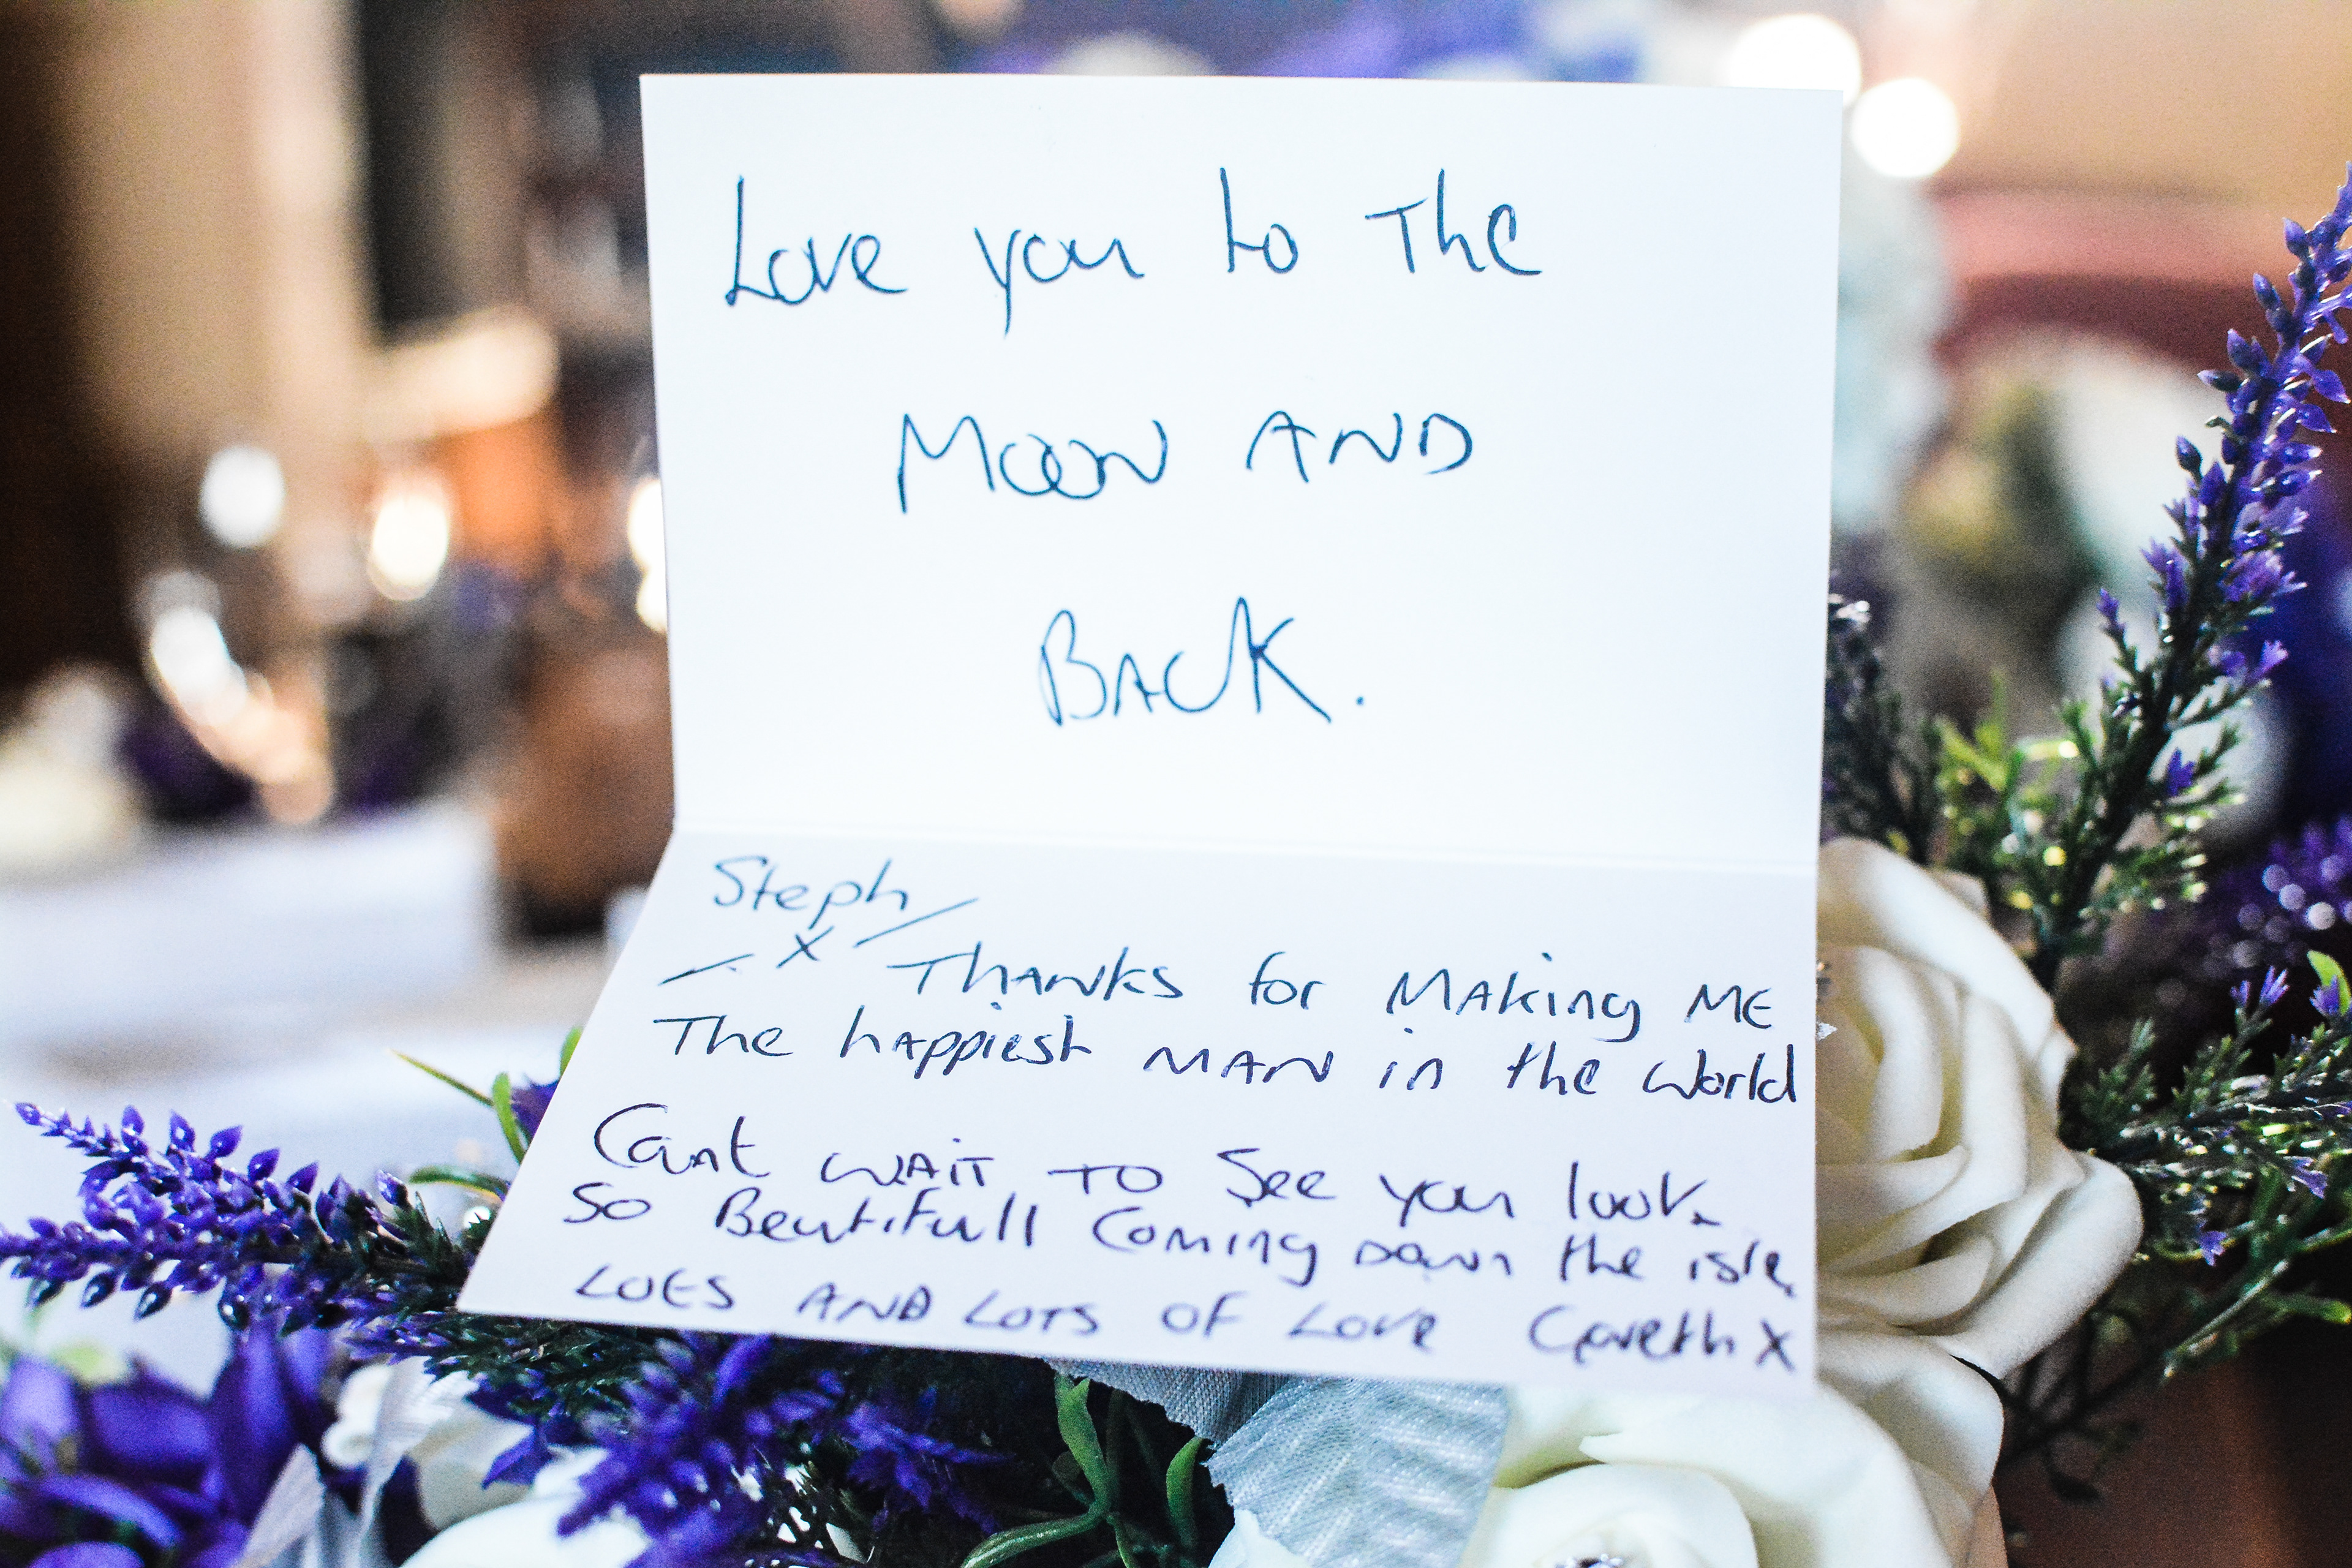 Love you to The
MOON AND
BACK.
Steph
x Thanks for Making ME
The happiest MAN in the World
Cant WAIT TO See you look
So Beutifull Coming Down the isle
LOES AND LOTS OF LOVE Gareth X